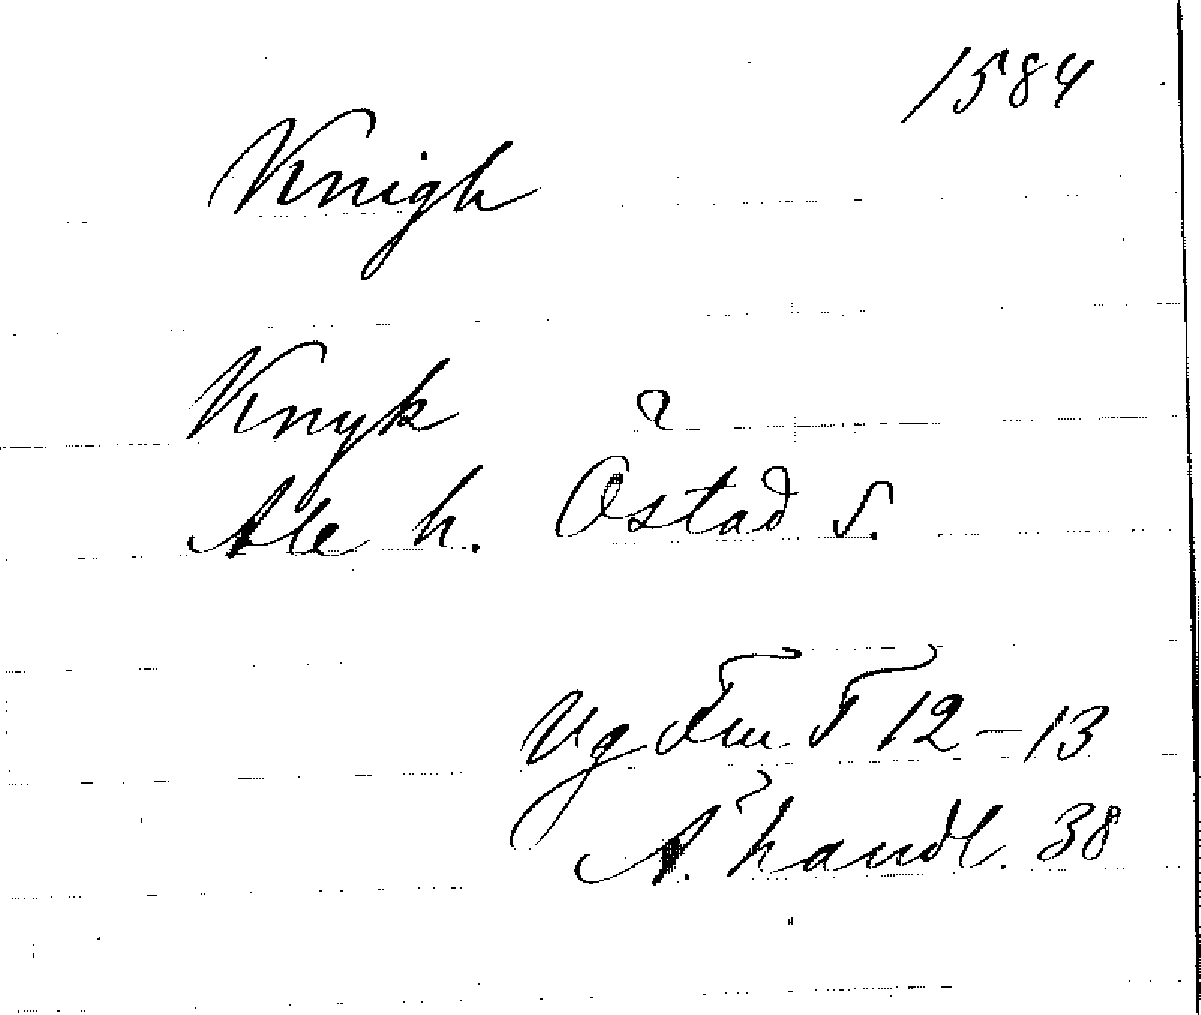 1584
Knigh
Knyk ?
Ale h. Östad s.
Vg Fm F 12-13
A. handl. 38